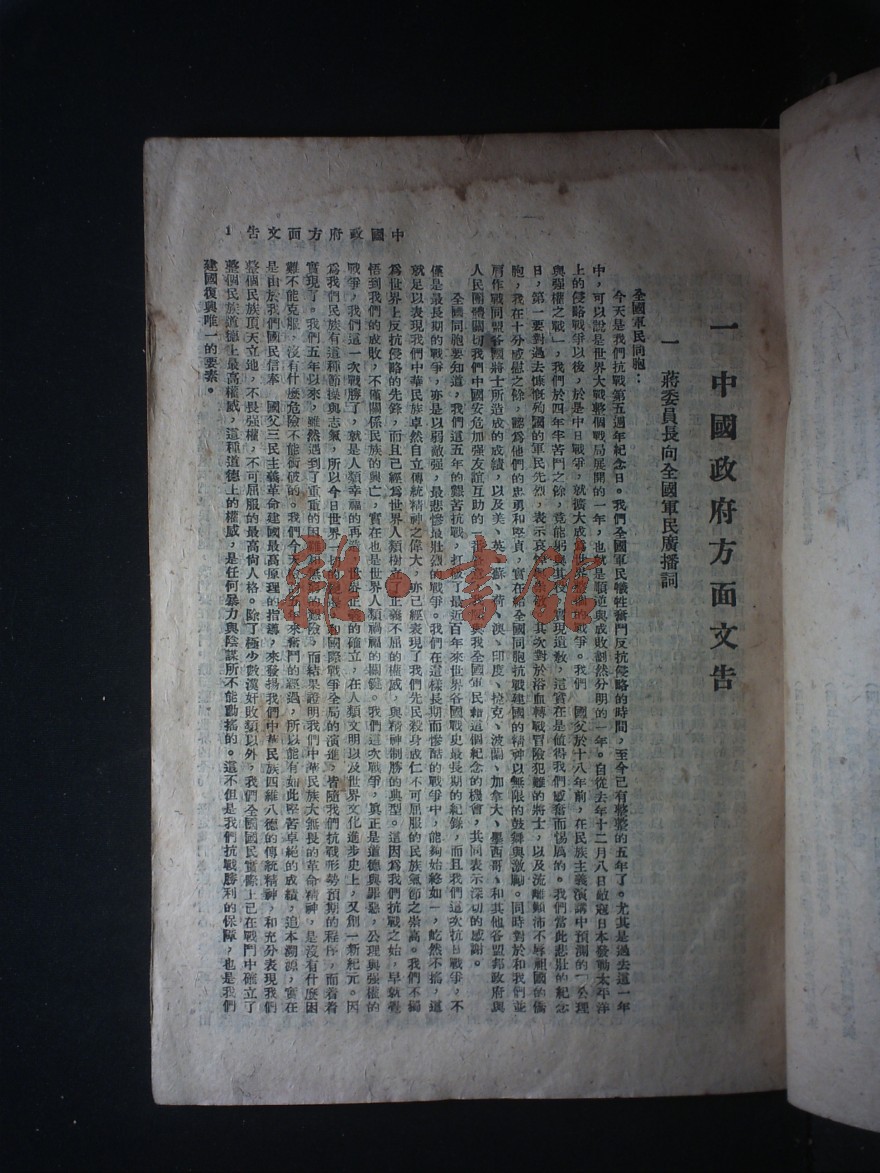 中國政府方面文告 1
一 中國政府方面文告
一 蔣委員長向全國軍民廣播詞
全國軍民同胞：
今天是我們抗戰第五週年紀念日。我們全國軍民犧牲奮鬥反抗侵略的時間，至今已有整整的五年了。尤其是過去這一年
中，可以說是世界大戰整個戰局展開的一年，也就是順逆與成敗劃然分明的一年。自從去年十二月八日敵寇日本發動太平洋
上的侵略戰爭以後，於是中日戰爭，就擴大成為世界整個的戰爭。我們 國父於十八年前，在民族主義演講中預測的「公理
與强權之戰」，我們於四年半苦鬥之餘，竟能躬與其役，實現遺敎，這實在是值得我們感奮而惕厲的。我們當此悲壯的紀念
日，第一要對過去慷慨殉國的軍民先烈，表示哀悼 其次對於浴血轉戰冒險犯難的將士，以及流離顚沛不辱祖國的僑
胞，我在十分感慰之餘，聽為他們的忠勇和堅貞，實在給全國同胞抗戰建國的精神以無限的鼓舞與激勵。同時對於和我們並
肩作戰同盟各國將士所造成的成績，以及美、英、蘇、荷、澳、印度、捷克、波蘭、加拿大、墨西哥、和其他各盟邦政府與
人民團體關切我們中國安危加强友誼互助的 我全國軍民藉這個紀念的機會，共同表示深切的感謝。
全國同胞要知道，我們這五年的艱苦抗戰，打破了最近百年來世界各國戰史最長期的紀錄，而且我們這次抗日戰爭，不
僅是最長期的戰爭，亦是以弱敵强，最悲慘最壯烈的戰爭。我們在這樣長期而慘酷的戰爭中，能夠始終如一，屹然不搖，這
就足以表現我們中華民族卓然自立傳統精神之偉大，亦已經表現了我們先民殺身成仁不可屈服的民族氣節之崇高。我們不獨
為世界上反抗侵略的先鋒，而且已經為世界人類樹立了正義不屈的權威，與精神制勝的典型。這因為我們抗戰之始，早就覺
悟到我們的成敗，不僅關係民族的興亡，實在也是世界人類禍福的關鍵。我們這次戰爭，眞正是道德與罪惡，公理與强權的
戰爭，我們這一次戰勝了，就是人類幸福的再造，世界正義的確立，在人類文明以及世界文化進步史上，又創一新紀元。因
為我們民族有這種節操與志氣，所以今日世界一切的 和國際戰爭全局的演進，皆隨我們抗戰形勢預期的程序，而着着
實現了。我們五年以來，雖然遇到了重重的困難和無窮的危險，而結果證明我們中華民族大無畏的革命精神，是沒有什麼困
難不能克服，沒有什麼危險不能衝破的。我們今天 五年來奮鬥的經過，所以能有如此堅苦卓絕的成績，追本溯源，實在
是由於我們國民信奉 國父三民主義革命建國最高原理的指導，來發揚我們中華民族四維八德的傳統精神，和充分表現我們
整個民族頂天立地，不畏强權，不可屈服的最高尙人格。除了極少數漢奸敗類以外，我們全國國民實際上已在戰鬥中確立了
整個民族道德上最高權威，這種道德上的權威，是任何暴力與陰謀所不能動搖的。這不但是我們抗戰勝利的保障，也是我們
建國復興唯一的要素。
雜·書館